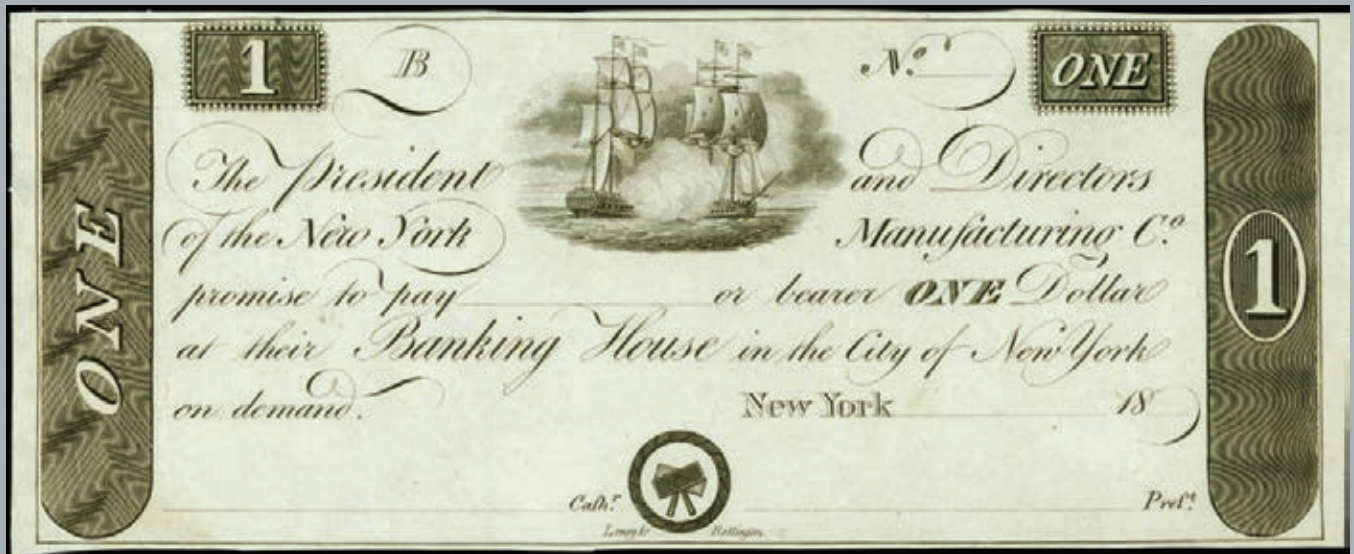 ONE
1 B No. ONE
The President and Directors
of the New York Manufacturing Co.
promise to pay or bearer ONE Dollar
at their Banking House in the City of New York
on demand. New York 18
1
Cashr. Prest.
Leney &